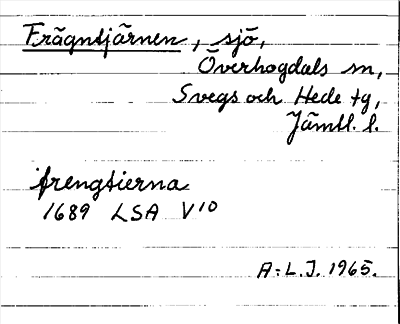 Frägntjärnen, sjö,
Överhogdals sn,
Svegs och Hede tg,
Jämtl. l.
frengtierna
1689 LSA V10
A:L.J. 1965.